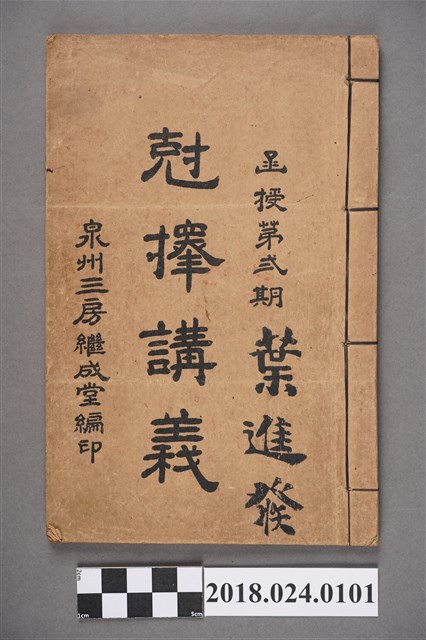 函授第弍期 葉進發
尅擇講義
泉州三房繼成堂編印
2cm
1cm
5cm
2018.024.0101